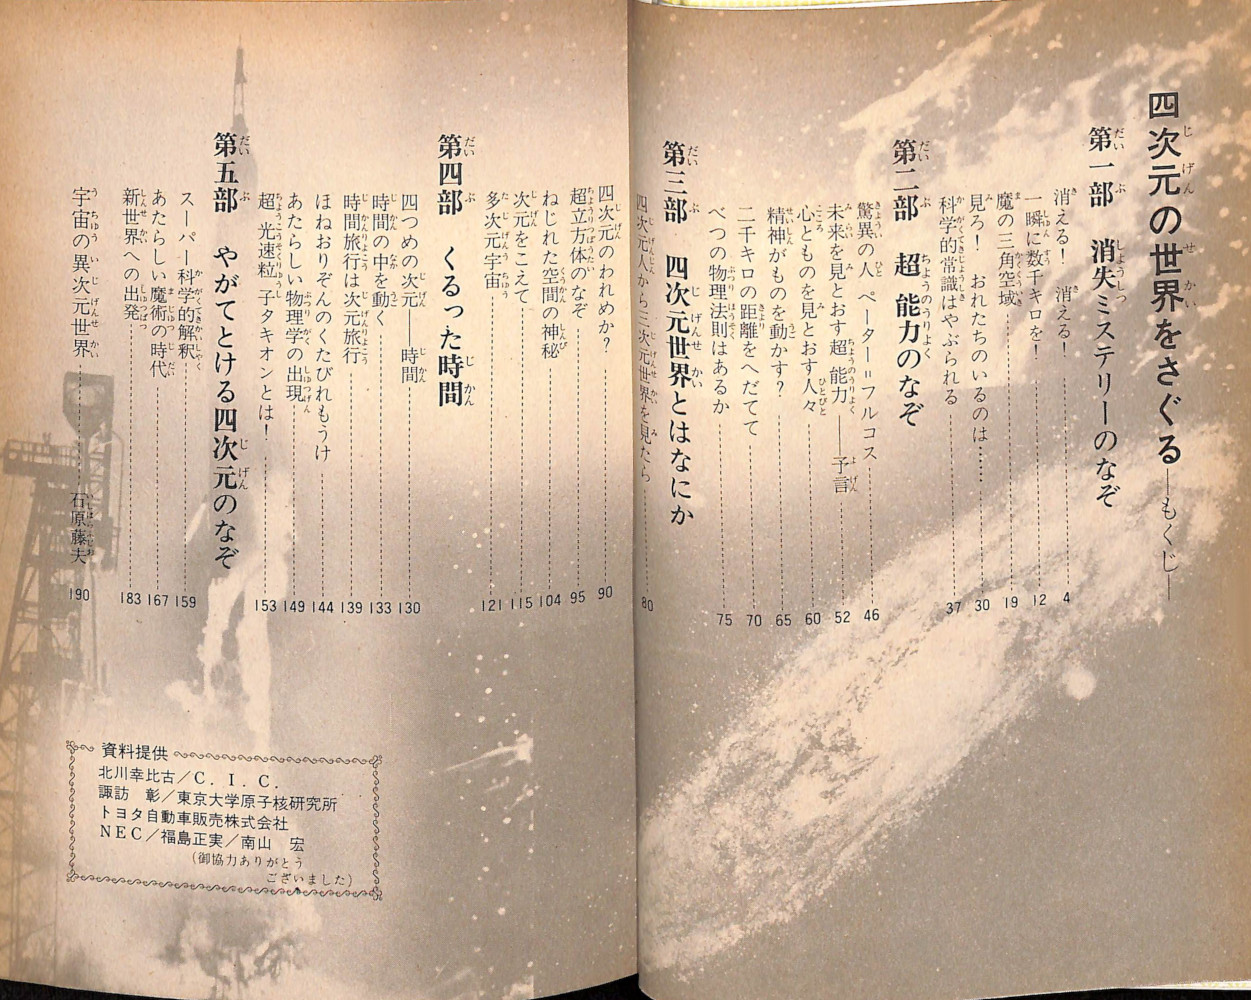 四次元の世界をさぐる——もくじ——
第一部　消失ミステリーのなぞ
消える！　消える！ 4
一瞬に数千キロを！ 12
魔の三角空域 19
見ろ！　おれたちのいるのは…… 30
科学的常識はやぶられる 37
第二部　超能力のなぞ
驚異の人　ペーター＝フルコス 46
未来を見とおす超能力——予言 52
心とものを見とおす人々 60
精神がものを動かす？ 65
二千キロの距離をへだてて 70
べつの物理法則はあるか 75
第三部　四次元世界とはなにか
四次元人から三次元世界を見たら 80
四次元のわれめか？ 90
超立方体のなぞ 95
ねじれた空間の神秘 104
次元をこえて 115
多次元宇宙 121
第四部　くるった時間
四つめの次元——時間 130
時間の中を動く 133
時間旅行は次元旅行 139
ほねおりぞんのくたびれもうけ 144
あたらしい物理学の出現 149
超光速粒子タキオンとは！ 153
第五部　やがてとける四次元のなぞ
スーパー科学的解釈 159
あたらしい魔術の時代 167
新世界への出発 183
宇宙の異次元世界 石原藤夫 190
資料提供
北川幸比古／C．I．C．
諏訪　彰／東京大学原子核研究所
トヨタ自動車販売株式会社
NEC／福島正実／南山　宏
（御協力ありがとう
ございました）